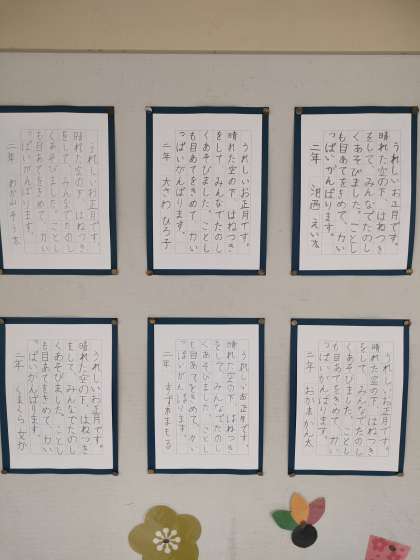 うれしいお正月です。
晴れた空の下 はねつき
をして みんなでたのし
くあそびました。ことし
も目あてをきめて 力い
っぱいがんばります。
二年
うれしいお正月です。
晴れた空の下 はねつき
をして みんなでたのし
くあそびました。ことし
も目あてをきめて 力い
っぱいがんばります。
二年 大さわ ひろ子
うれしいお正月です。
晴れた空の下 はねつき
をして みんなでたのし
くあそびました。ことし
も目あてをきめて 力い
っぱいがんばります。
二年 えい太
うれしいお正月です。
晴れた空の下 はねつき
をして みんなでたのし
くあそびました。ことし
も目あてをきめて 力い
っぱいがんばります。
二年 くまくら
うれしいお正月です。
晴れた空の下 はねつき
をして みんなでたのし
くあそびました。ことし
も目あてをきめて 力い
っぱいがんばります。
二年 まもる
うれしいお正月です。
晴れた空の下 はねつき
をして みんなでたのし
くあそびました。ことし
も目あてをきめて 力い
っぱいがんばります。
二年 かん太